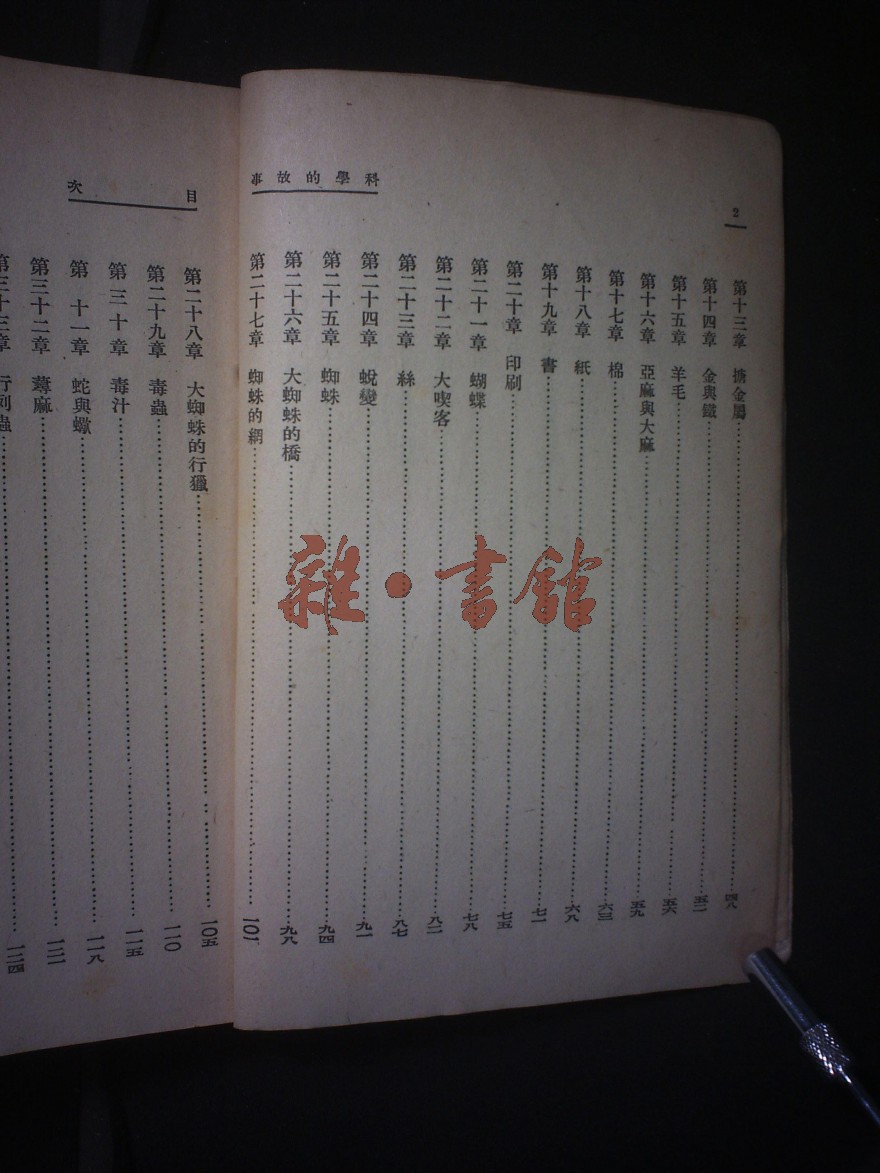 科學的故事
2
第十三章 搪金屬 四八
第十四章 金與鐵 五二
第十五章 羊毛 五六
第十六章 亞麻與大麻 五九
第十七章 棉 六三
第十八章 紙 六八
第十九章 書 七一
第二十章 印刷 七五
第二十一章 蝴蝶 七八
第二十二章 大喫客 八二
第二十三章 絲 八七
第二十四章 蛻變 九一
第二十五章 蜘蛛 九四
第二十六章 大蜘蛛的橋 九八
第二十七章 蜘蛛的網 一〇一
目次
第二十八章 大蜘蛛的行獵 一〇五
第二十九章 毒蟲 一一〇
第三十章 毒汁 一一五
第 十一章 蛇與蠍 一一八
第三十二章 蕁麻 一二一
第三十三章 行列蟲 一二四
雜·書館